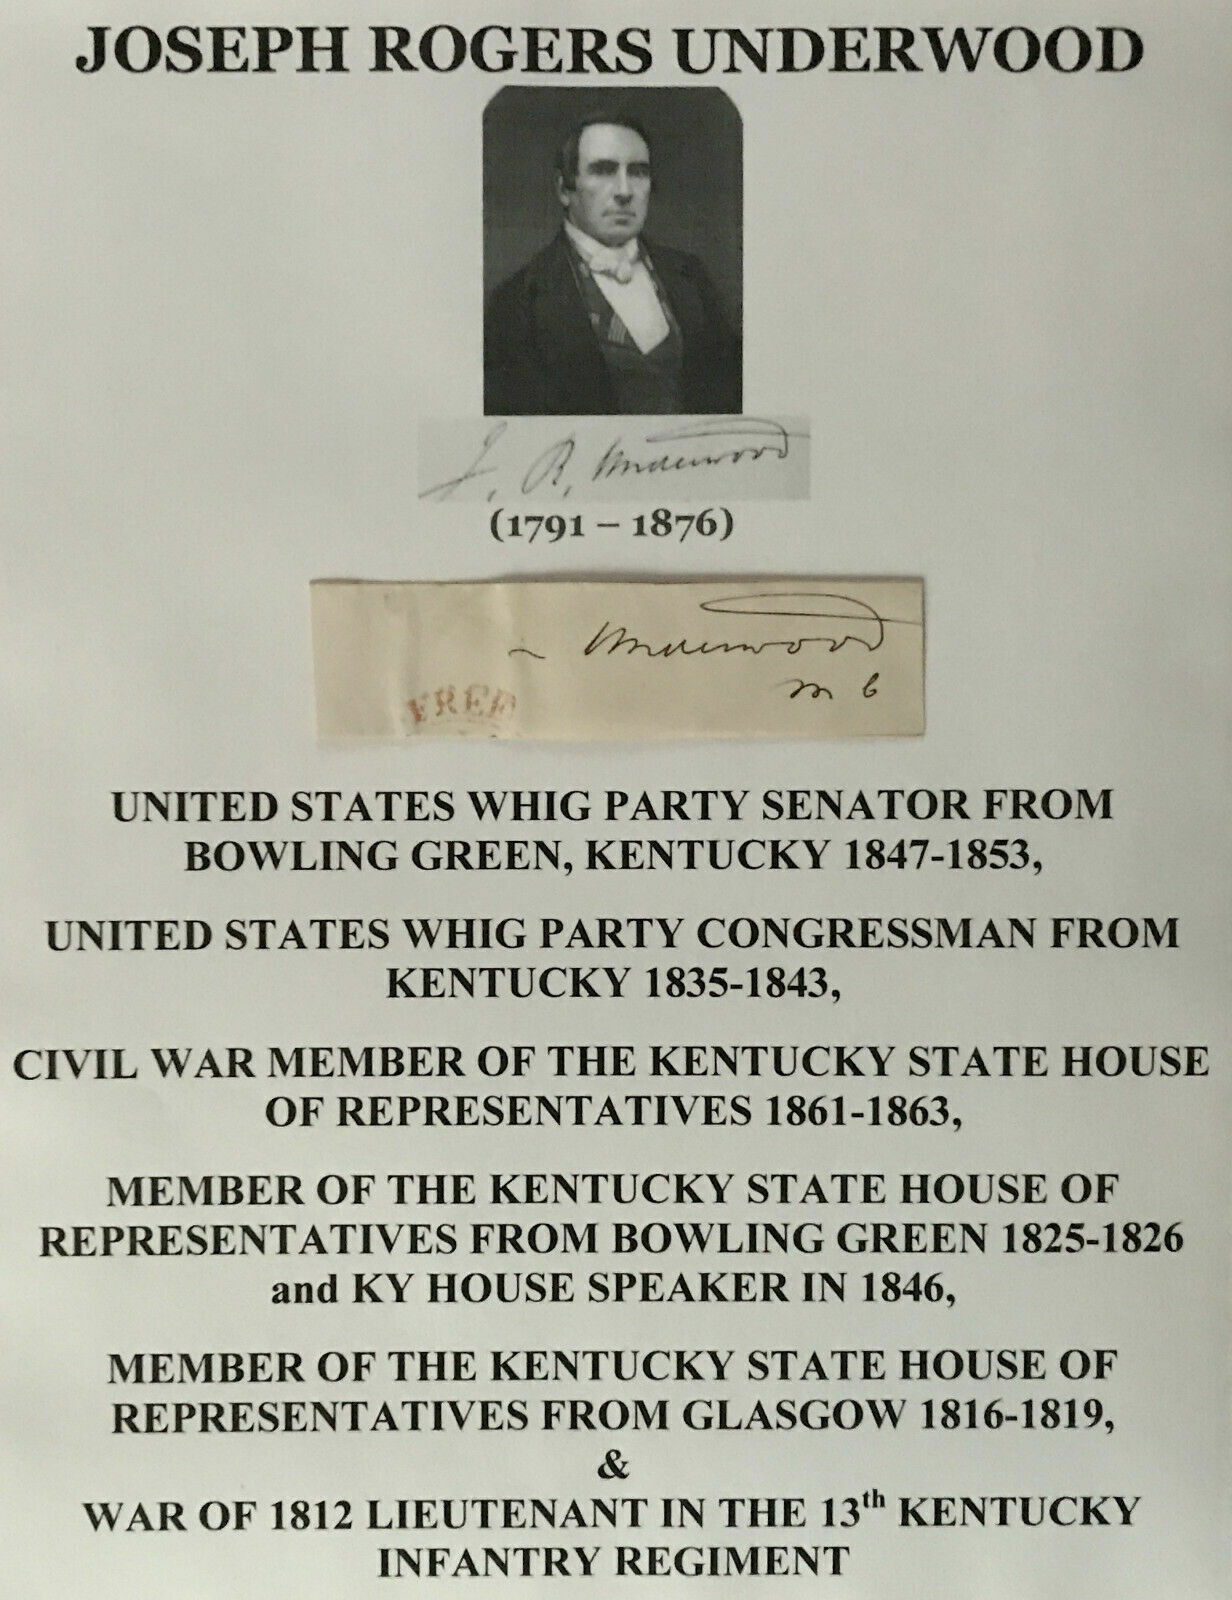 JOSEPH ROGERS UNDERWOOD
J. R. Underwood
(1791 – 1876)
Underwood
M C
FREE
UNITED STATES WHIG PARTY SENATOR FROM
BOWLING GREEN, KENTUCKY 1847-1853,
UNITED STATES WHIG PARTY CONGRESSMAN FROM
KENTUCKY 1835-1843,
CIVIL WAR MEMBER OF THE KENTUCKY STATE HOUSE
OF REPRESENTATIVES 1861-1863,
MEMBER OF THE KENTUCKY STATE HOUSE OF
REPRESENTATIVES FROM BOWLING GREEN 1825-1826
and KY HOUSE SPEAKER IN 1846,
MEMBER OF THE KENTUCKY STATE HOUSE OF
REPRESENTATIVES FROM GLASGOW 1816-1819,
&
WAR OF 1812 LIEUTENANT IN THE 13th KENTUCKY
INFANTRY REGIMENT